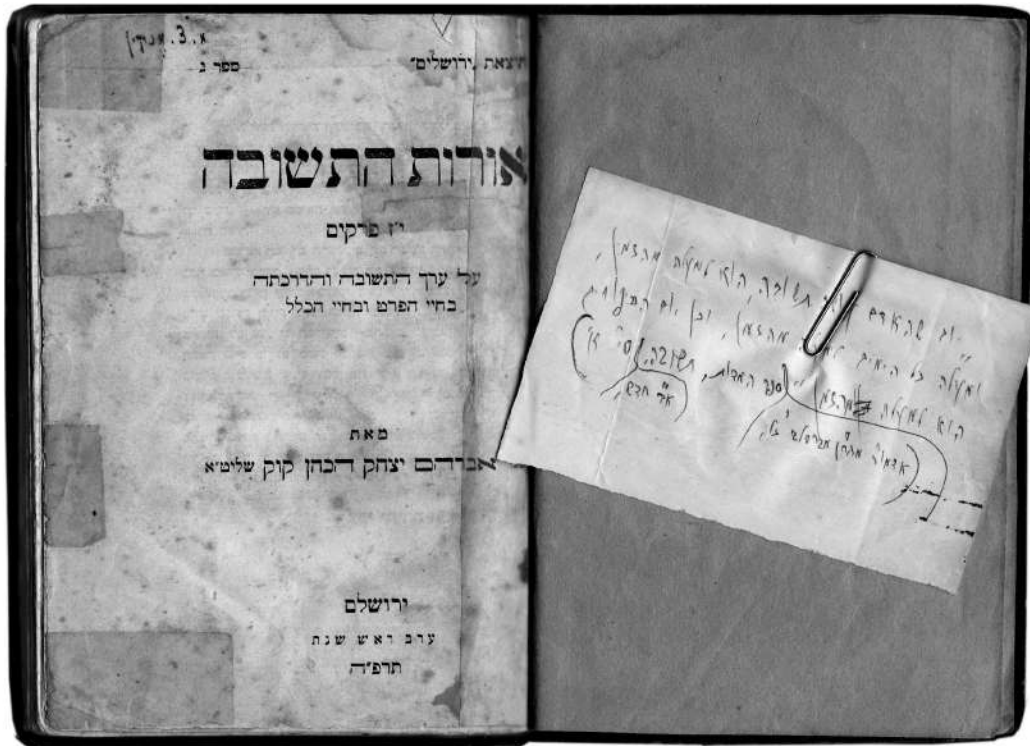 הוצאת „ירושלים״ ספר ג
אורות התשובה
י״ז פרקים
על ערך התשובה והדרכתה
בחיי הפרט ובחיי הכלל
מאת
אברהם יצחק הכהן קוק שליט״א
ירושלם
ערב ראש שנת
תרפ״ה
יום שהאדם תשובה, הוא למעלה מהזמן,
ומעלה כל הימים למעלה מהזמן, וכן יום הכיפורים
הוא למעלה מהזמן (ספר המדות, תשובה,
חדש